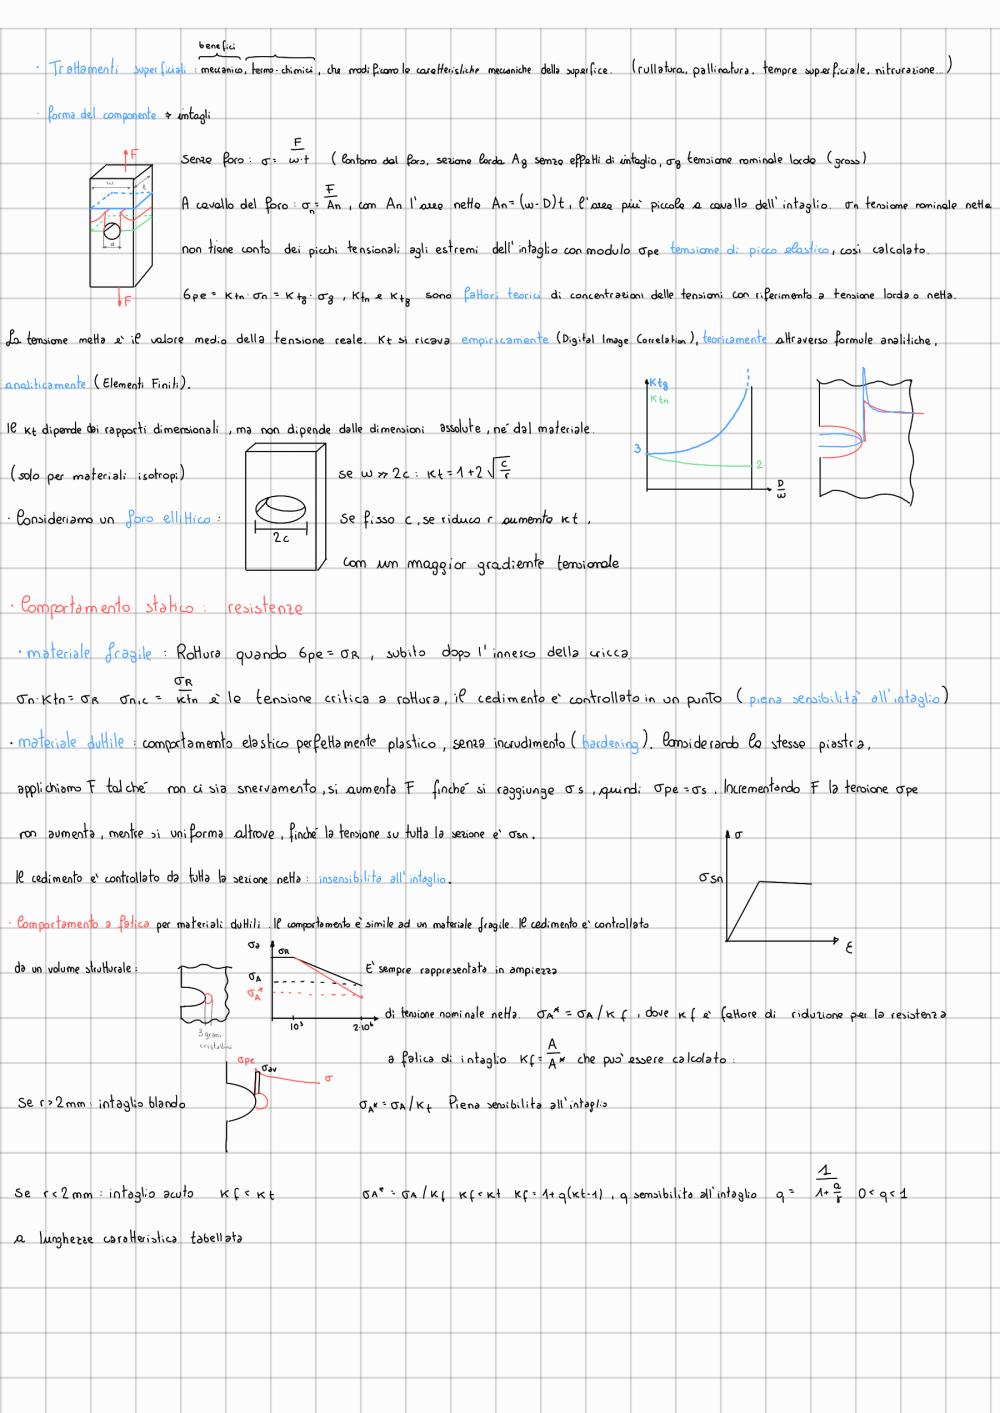 benefici
· Trattamenti superficiali : meccanico, termo-chimici, che modificano le caratteristiche meccaniche della superfice. (rullatura, pallinatura, tempre superficiale, nitrurazione...)
· forma del componente → intagli
F
w
t
d
F
Senza foro: σ = F/w·t (lontano dal foro, sezione lorda Ag senza effetti di intaglio, σg tensione nominale lorda (gross)
A cavallo del foro: σn = F/An, con An l'area netta An=(w-D)t, l'area più piccola a cavallo dell'intaglio. σn tensione nominale netta
non tiene conto dei picchi tensionali agli estremi dell'intaglio con modulo σpe tensione di picco elastico, così calcolato.
σpe = Ktn·σn = Ktg·σg, Ktn e Ktg sono fattori teorici di concentrazioni delle tensioni con riferimento a tensione lorda o netta.
La tensione netta è il valore medio della tensione reale. Kt si ricava empiricamente (Digital Image Correlation), teoricamente attraverso formule analitiche,
analiticamente (Elementi Finiti).
Ktg
Ktn
3
2
D/w
Il Kt dipende dai rapporti dimensionali, ma non dipende dalle dimensioni assolute, né dal materiale.
(solo per materiali isotropi)
se w >> 2c : Kt = 1+2√c/r
· Consideriamo un foro ellittico :
2c
Se fisso c, se riduco r aumenta Kt,
con un maggior gradiente tensionale
· Comportamento statico: resistenze
· materiale fragile : Rottura quando σpe = σR, subito dopo l'innesco della cricca
σn·Ktn = σR σn,c = σR/Ktn è la tensione critica a rottura, il cedimento è controllato in un punto (piena sensibilità all'intaglio)
· materiale duttile : comportamento elastico perfettamente plastico, senza incrudimento (hardening). Considerando la stesse piastra,
applichiamo F tal che non ci sia snervamento, si aumenta F finché si raggiunge σs, quindi σpe = σs. Incrementando F la tensione σpe
non aumenta, mentre si uniforma altrove, finché la tensione su tutta la sezione è σsn.
σ
σsn
ε
Il cedimento è controllato da tutta la sezione netta : insensibilità all'intaglio.
· Comportamento a fatica per materiali duttili. Il comportamento è simile ad un materiale fragile. Il cedimento è controllato
da un volume strutturale :
3 grani
cristallini
σa
σR
σA
σA*
10³
2·10⁶
E' sempre rappresentata in ampiezza
di tensione nominale netta. σA* = σA/Kf, dove Kf è fattore di riduzione per la resistenza
a fatica di intaglio Kf = A/A* che può essere calcolato :
σpe
σav
σ
Se r>2mm : intaglio blando
σA* = σA/Kt Piena sensibilità all'intaglio
Se r<2mm : intaglio acuto Kf < Kt
σA* = σA/Kf Kf<Kt Kf = 1+q(Kt-1), q sensibilità all'intaglio q = 1/1+a/r 0<q<1
a lunghezze caratteristica tabellata